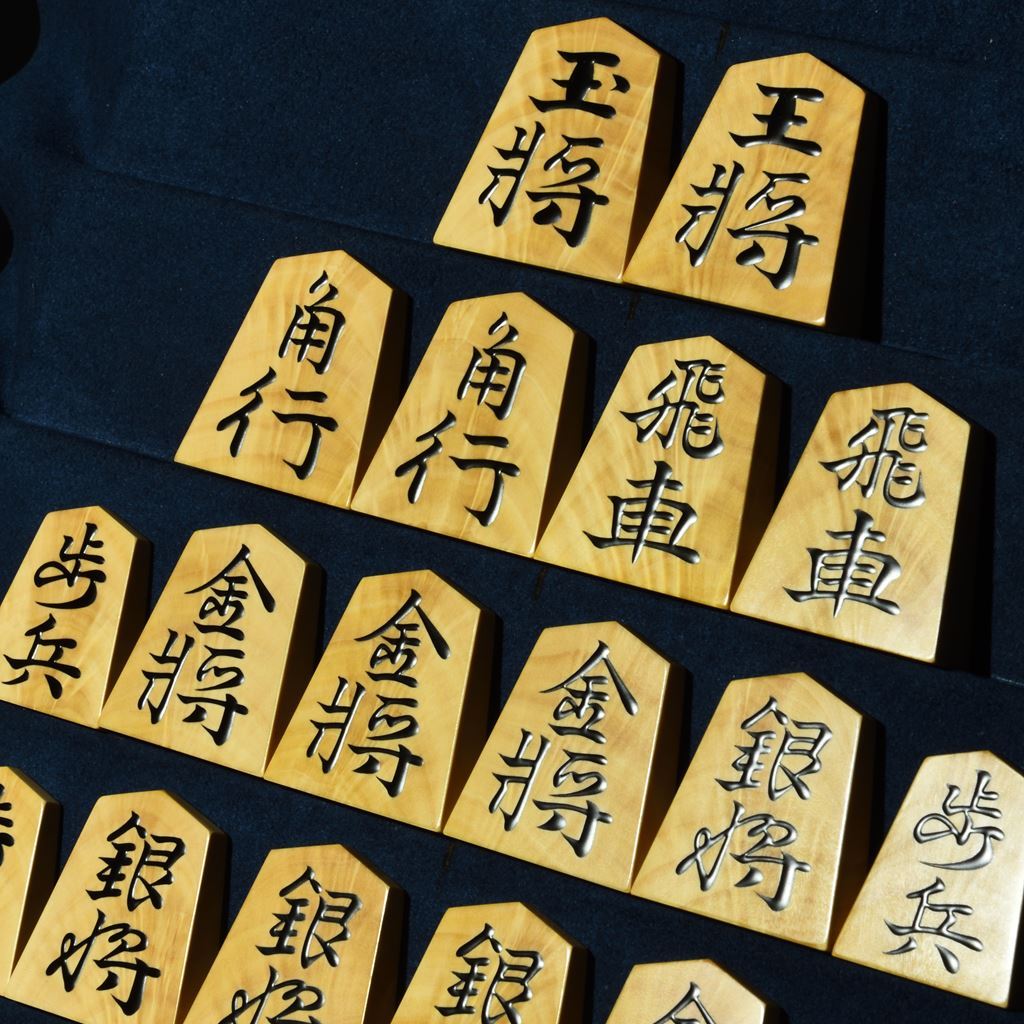 玉將
王將
角行
角行
飛車
飛車
歩兵
金將
金將
金將
銀将
歩兵
銀将
銀将
銀